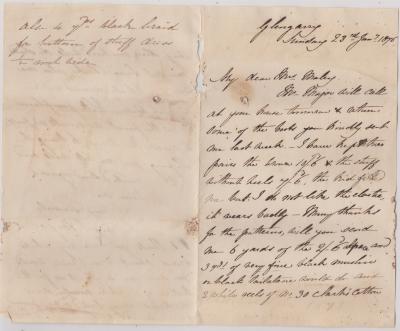 also 4 yds black braid
for bottom of stuff dress
Glengarry
Sunday 23rd Jany 1876
My dear Mrs. Maley
Mr. Major will call
at your house tomorrow & return
some of the boots you kindly sent
me last week – I have kept two
pairs the laced 10/6 & the stuff
without heels 9/6, the kid
me but I do not like the elastic,
it wears badly – Many thanks
for the patterns, will you send
me 6 yards of the 2/6 and
3 yds of very fine black muslin
or black Tarlatane and
2 white reels of No 30 Clarks Cotton